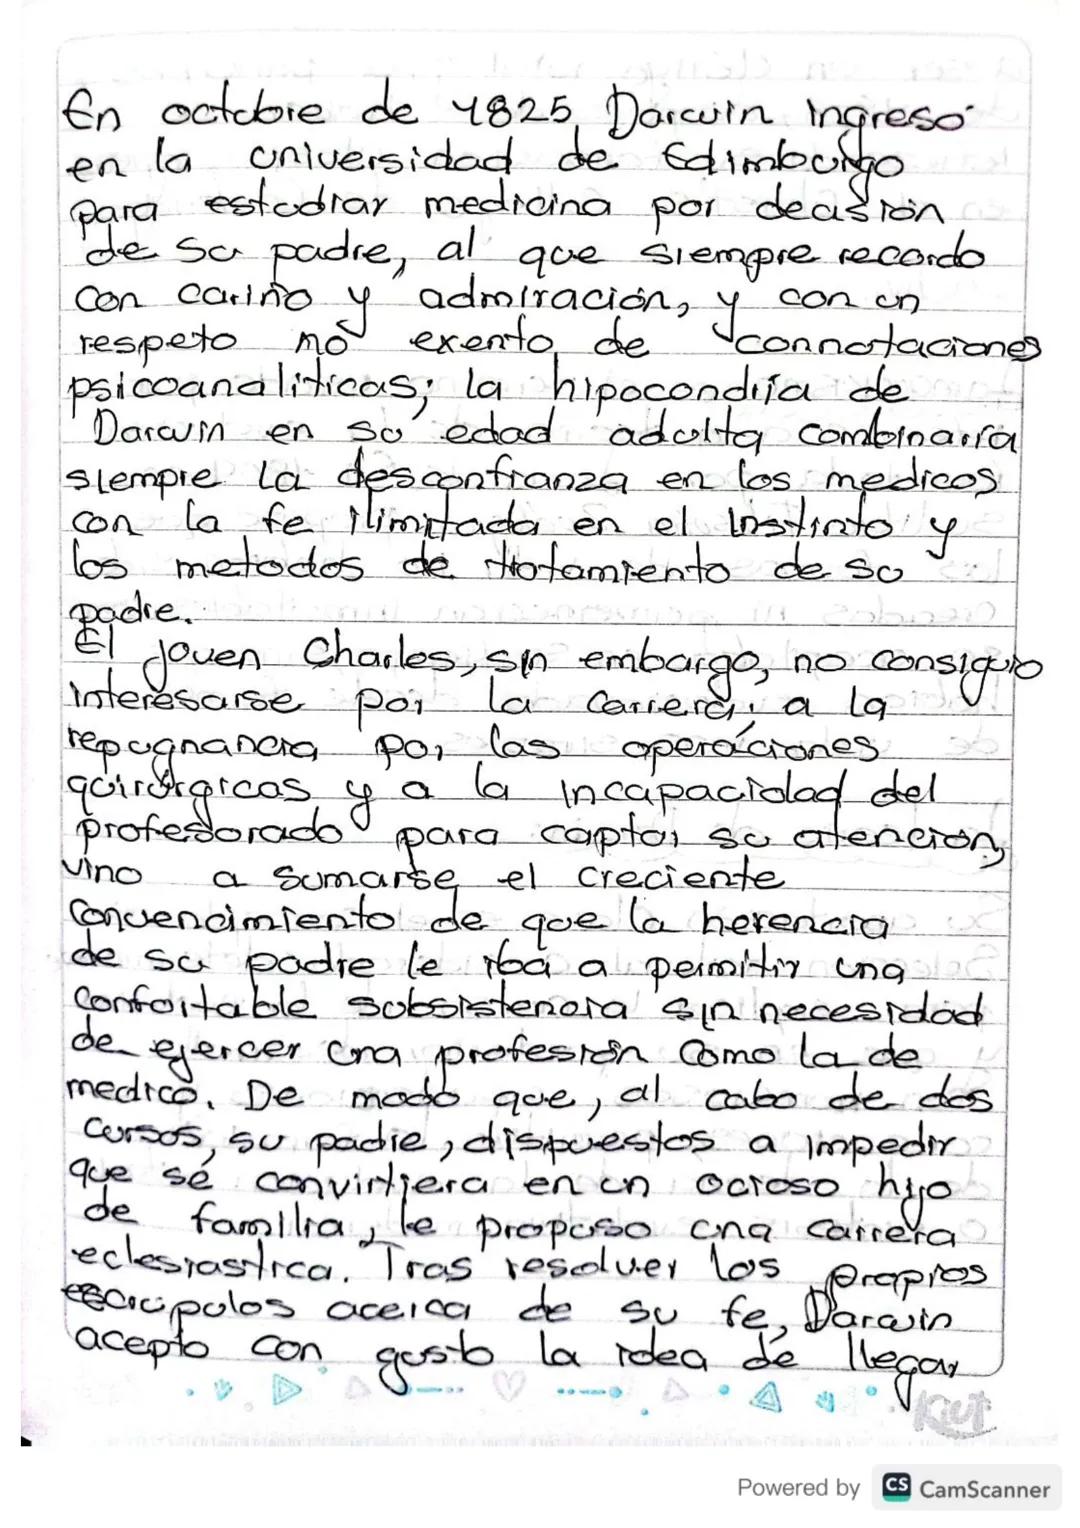 En octubre de 1825 Darwin ingreso
en la universidad de Edimburgo
para estudiar medicina por decasión
de su padre, al que siempre recordo
con cariño y admiración, y con un
respeto no exento de connotaciones
psicoanaliticas; la hipocondría de
Darwin en su edad adulta combinaría
siempre la desconfianza en los medicos
con la fe ilimitada en el instinto y
los metodos de tratamiento de su
padre.
El joven Charles, sin embargo, no consiguio
interesarse por la carrera; a la
repugnancia por las operaciones
quirúrgicas y a la incapacidad del
profesorado para captar su atencion,
vino a sumarse el creciente
convencimiento de que la herencia
de su padre le iba a permitir una
confortable subsistencia sin necesidad
de ejercer una profesión como la de
medico. De modo que, al cabo de dos
cursos, su padre, dispuestos a impedir
que se convirtiera en un ocioso hijo
de familia, le propuso una carrera
eclesiastica. Tras resolver los propios
escrupulos acerca de su fe, Darwin
acepto con gusto la idea de llegar
Kiut
Powered by CS CamScanner